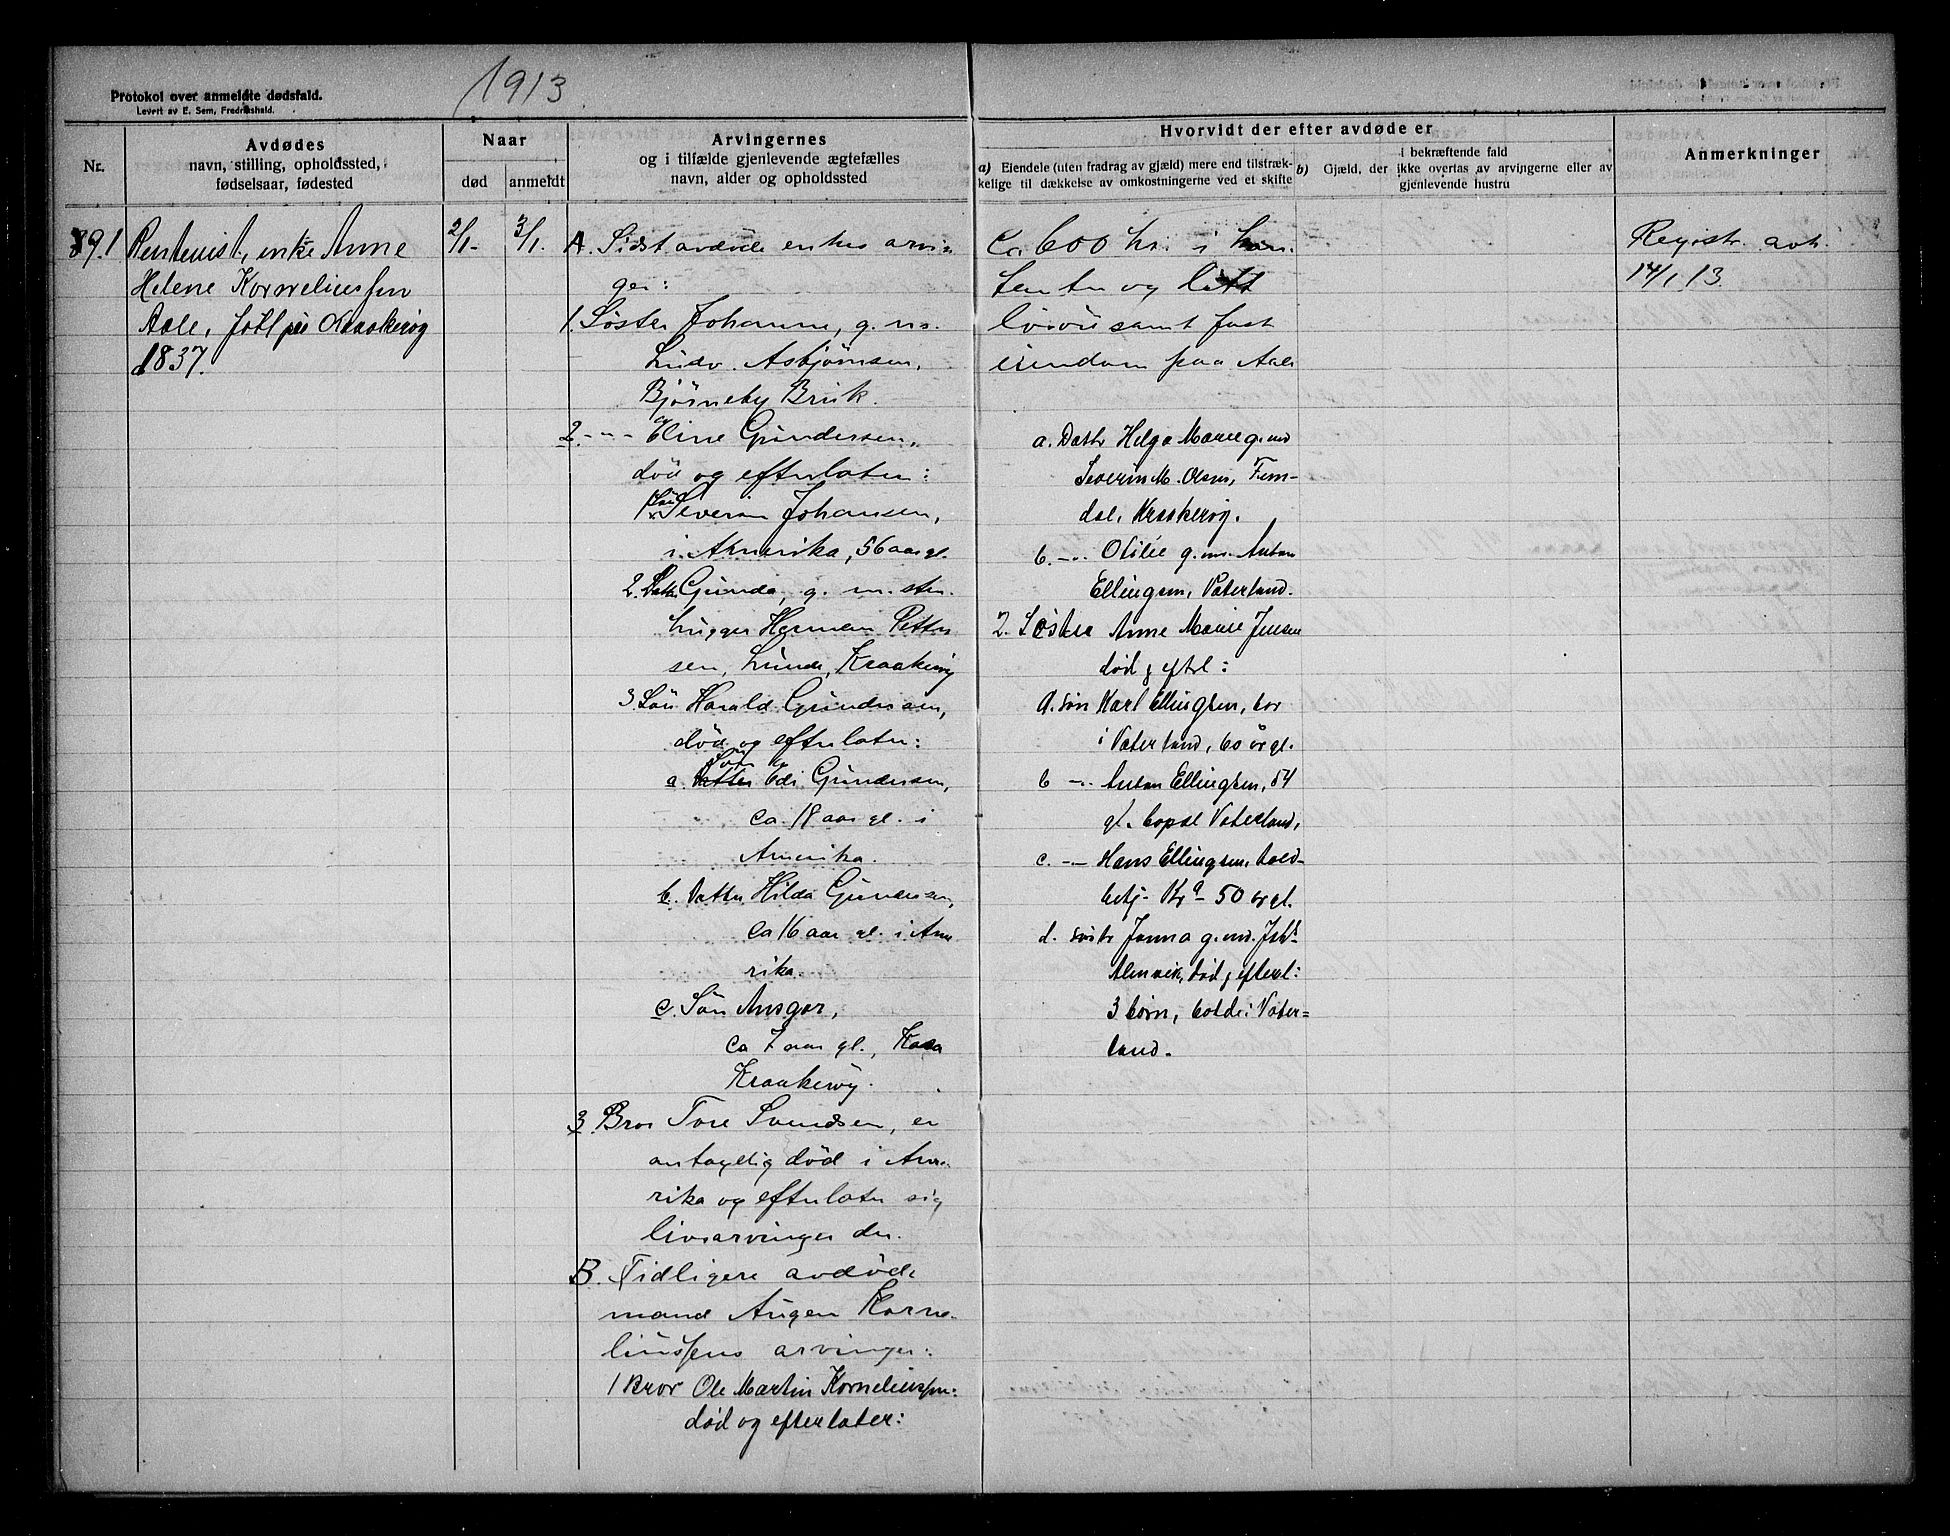 1913
Protokol over anmeldte dødsfald.
Levert av E. Sem, Fredrikshald.
Nr.
Avdødes
navn, stilling, opholdssted,
fødselsaar, fødested
Naar
død
anmeldt
Arvingernes
og i tilfælde gjenlevende ægtefælles
navn, alder og opholdssted
Hvorvidt der efter avdøde er
a) Eiendele (uten fradrag av gjæld) mere end tilstræk-
kelige til dækkelse av omkostningerne ved et skifte
i bekræftende fald
b) Gjæld, der ikke overtas av arvingerne eller av
gjenlevende hustru
Anmerkninger
891
Rentenist, enke Anne
Helene Korneliussen
Aale, født på Kraakerøy
1837.
2/1-
3/1.
A. Sidst avdøde enkes arvin
ger:
1. Søster Johanne, g. m.
Ludv. Asbjørnsen,
Bjørneby Bruk.
2. -"- Eline Gundersen,
død og efterlater:
1. Søn Severin Johansen,
i Amerika, 56 aar gl.
2. Datter Gunda, g. m. sten
hugger Herman Petter
sen, Lunde, Kraakerøy
3. Søn Harald Gundersen,
død og efterlater:
a. Søn Edi Gundersen,
ca. 18 aar gl. i
Amerika.
b. Datter Hilda Gundersen,
ca 16 aar gl. i Ame
rika.
c. Søn Ansgar,
ca 7 aar gl.,
Kraakerøy.
3. Bror Tore Svendsen, er
antagelig død i Ame-
rika og efterlater sig
livsarvinger der.
B. Tidligere avdøde
mand Augen Korne-
liussens arvinger:
1 Bror Ole Martin Kornelinssen:
død og efterlater:
Ca. 600 kr. i kon-
tenter og litt
løsøre samt fast
eiendom paa Aale
a. Datter Helga Marie g. md
Severin M. Olsen, Fem-
dal, Kraakerøy.
b. -"- Otilie g. m. Anton
Ellingsen, Vaterland.
2. Søster Anne Marie Jensen
død & eftrl:
a. Søn Karl Ellingsen, bor
i Vaterland, 60 år gl.
b -"- Anton Ellingsen, 54
gl. bopæl Vaterland,
c. -"- Hans Ellingsen, told-
betj. Kra - 50 år gl.
d. Janna g. md. Johs
død & efterl:
3 børn, i Vater-
land.
Registr. avh.
14/1 13.